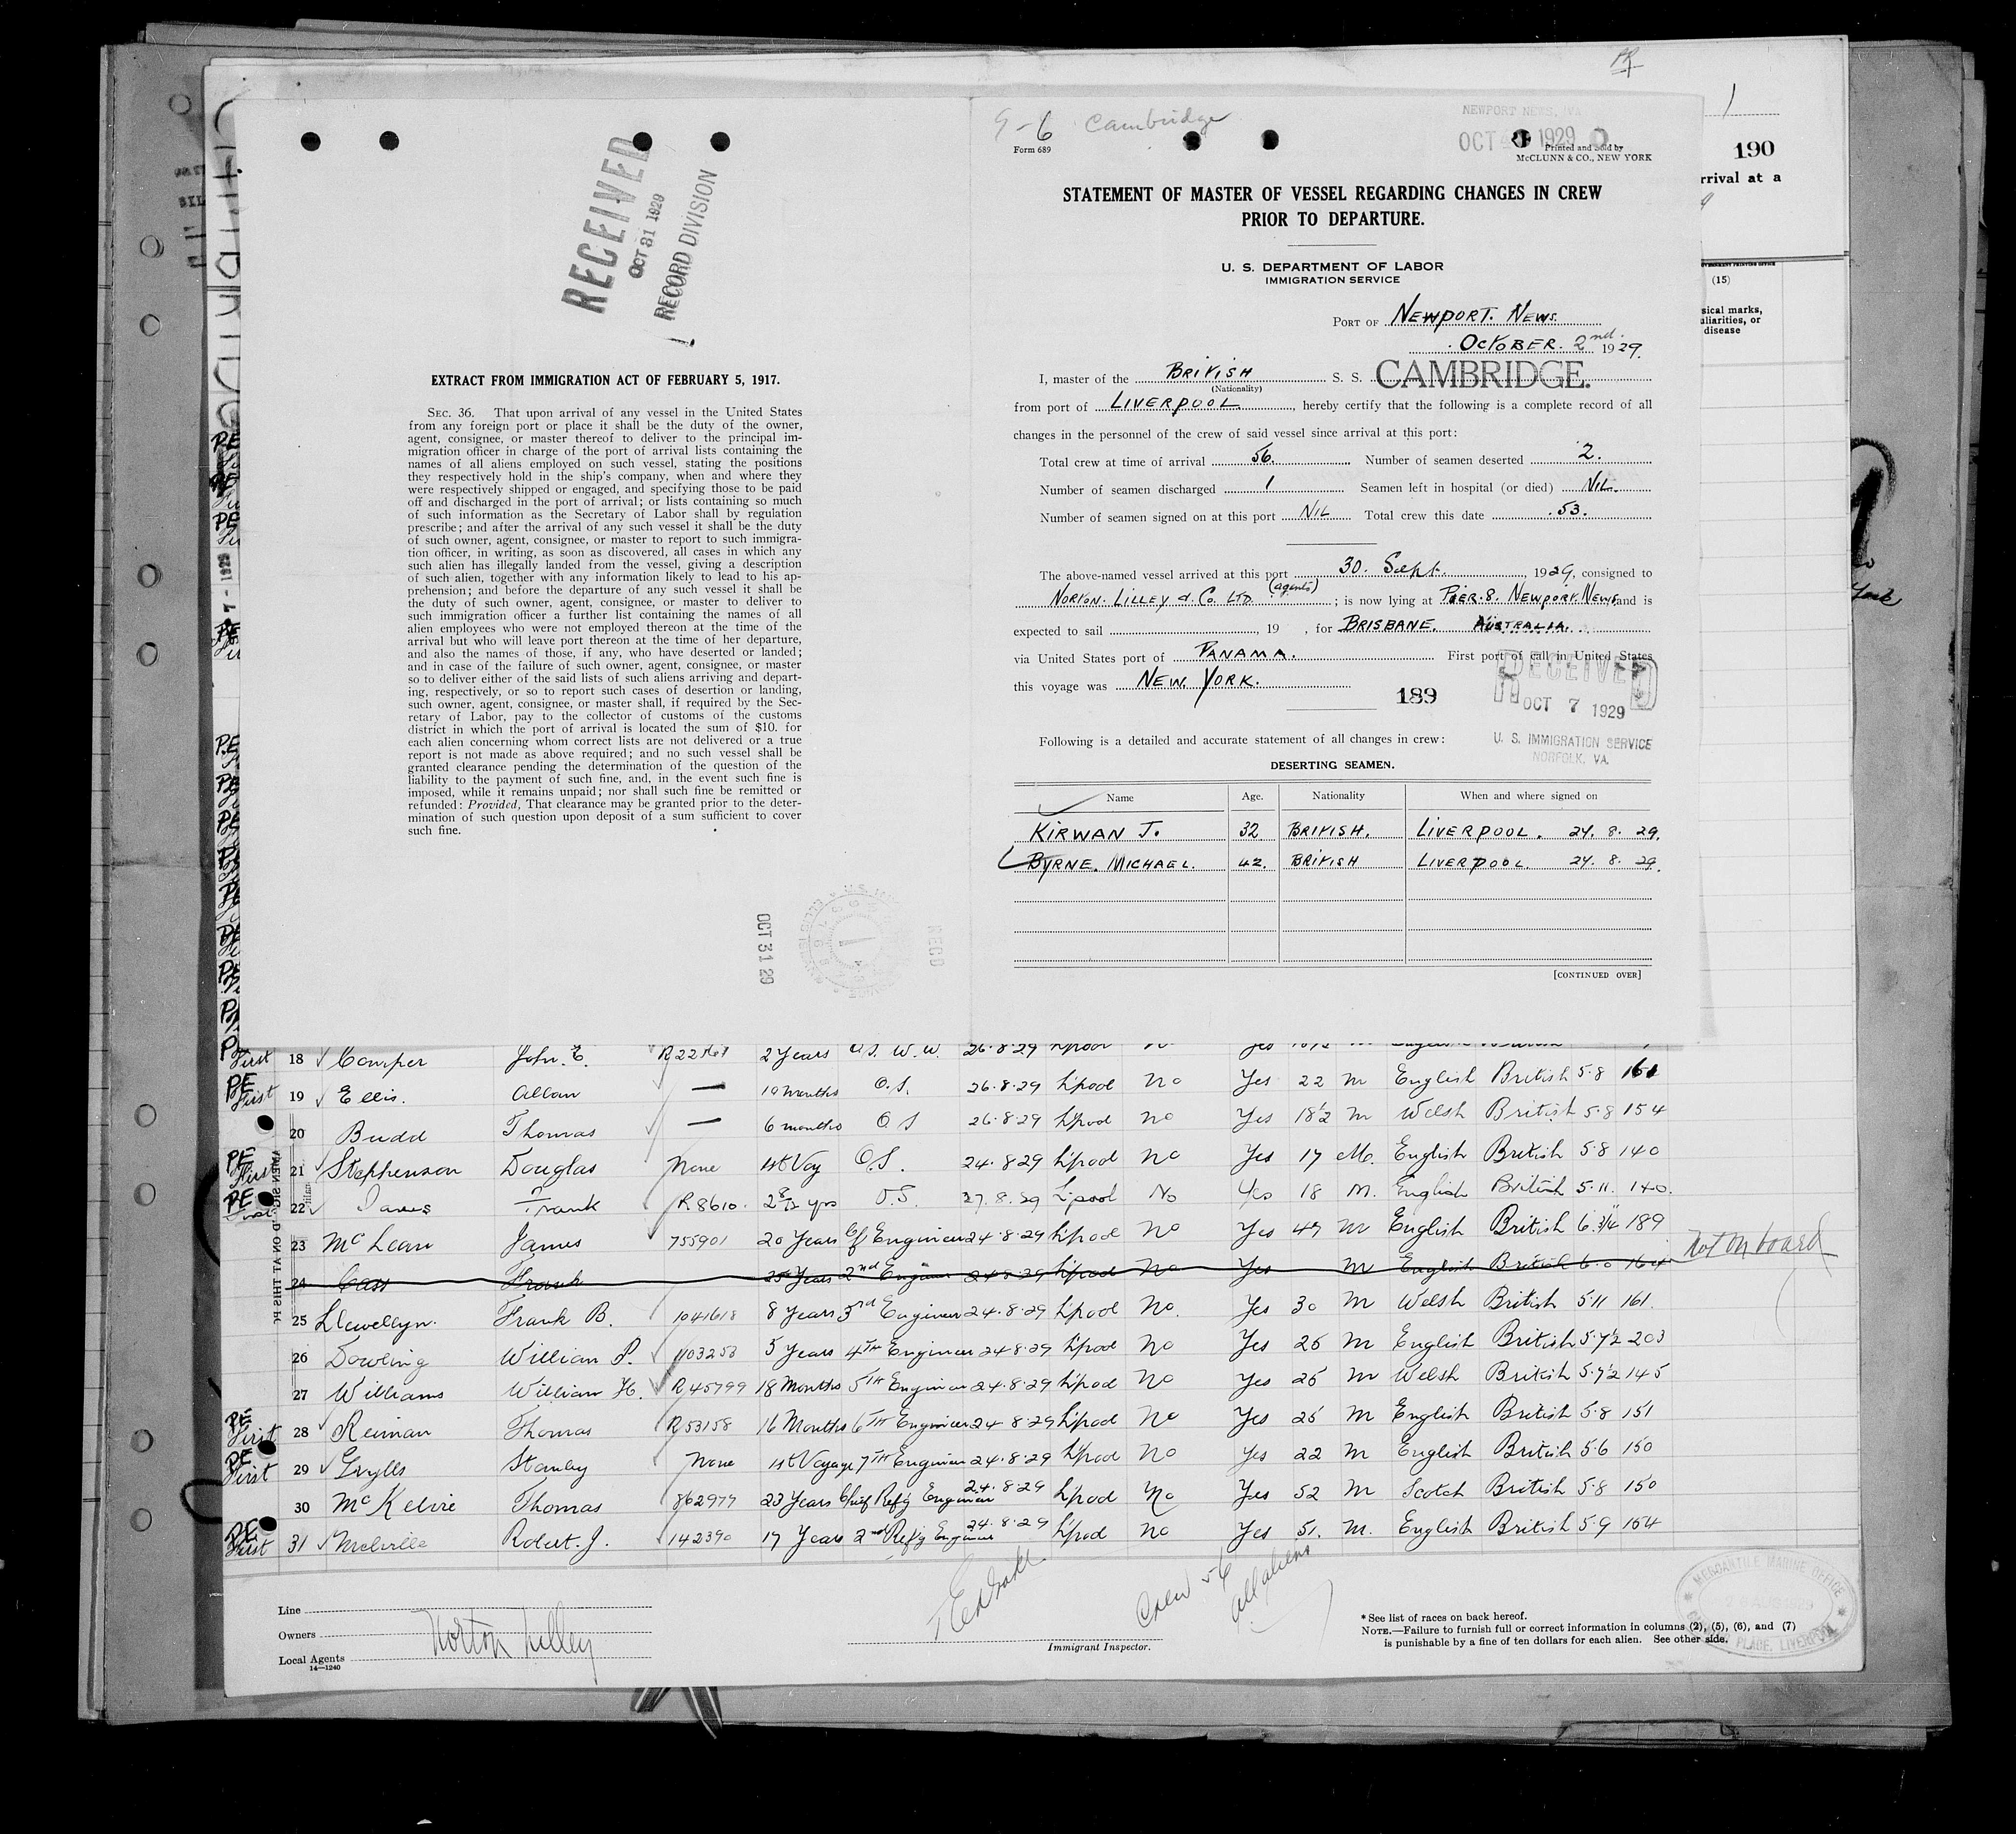 RECEIVED
OCT 31 1929
RECORD DIVISION
EXTRACT FROM IMMIGRATION ACT OF FEBRUARY 5, 1917.
SEC. 36. That upon arrival of any vessel in the United States
from any foreign port or place it shall be the duty of the owner,
agent, consignee, or master thereof to deliver to the principal im-
migration officer in charge of the port of arrival lists containing the
names of all aliens employed on such vessel, stating the positions
they respectively hold in the ship's company, when and where they
were respectively shipped or engaged, and specifying those to be paid
off and discharged in the port of arrival; or lists containing so much
of such information as the Secretary of Labor shall by regulation
prescribe; and after the arrival of any such vessel it shall be the duty
of such owner, agent, consignee, or master to report to such immigra-
tion officer, in writing, as soon as discovered, all cases in which any
such alien has illegally landed from the vessel, giving a description
of such alien, together with any information likely to lead to his ap-
prehension; and before the departure of any such vessel it shall be
the duty of such owner, agent, consignee, or master to deliver to
such immigration officer a further list containing the names of all
alien employees who were not employed thereon at the time of the
arrival but who will leave port thereon at the time of her departure,
and also the names of those, if any, who have deserted or landed;
and in case of the failure of such owner, agent, consignee, or master
so to deliver either of the said lists of such aliens arriving and depart-
ing, respectively, or so to report such cases of desertion or landing,
such owner, agent, consignee, or master shall, if required by the Sec-
retary of Labor, pay to the collector of customs of the customs
district in which the port of arrival is located the sum of $10. for
each alien concerning whom correct lists are not delivered or a true
report is not made as above required; and no such vessel shall be
granted clearance pending the determination of the question of the
liability to the payment of such fine, and, in the event such fine is
imposed, while it remains unpaid; nor shall such fine be remitted or
refunded: Provided, That clearance may be granted prior to the deter-
mination of such question upon deposit of a sum sufficient to cover
such fine.
OCT 31 29
9-6 Cambridge
Form 689
NEWPORT NEWS, VA.
OCT 1929
Printed and Sold by
McCLUNN & CO., NEW YORK
STATEMENT OF MASTER OF VESSEL REGARDING CHANGES IN CREW
PRIOR TO DEPARTURE.
U. S. DEPARTMENT OF LABOR
IMMIGRATION SERVICE
PORT OF NEWPORT. NEWS.
OCTOBER. 2nd. 1929.
I, master of the BRITISH S. S. CAMBRIDGE.
(Nationality)
from port of LIVERPOOL, hereby certify that the following is a complete record of all
changes in the personnel of the crew of said vessel since arrival at this port:
Total crew at time of arrival 56. Number of seamen deserted 2.
Number of seamen discharged 1 Seamen left in hospital (or died) NIL.
Number of seamen signed on at this port NIL Total crew this date 53.
The above-named vessel arrived at this port 30. Sept. 1929, consigned to
NORTON. LILLEY & Co. LTD (agents); is now lying at PIER. 8. NEWPORT. NEWS and is
expected to sail , 19 , for BRISBANE. AUSTRALIA.
via United States port of PANAMA. First port of call in United States
this voyage was NEW YORK.
189
RECEIVED
OCT 7 1929
U. S. IMMIGRATION SERVICE
NORFOLK, VA.
Following is a detailed and accurate statement of all changes in crew:
DESERTING SEAMEN.
Name Age. Nationality When and where signed on
KIRWAN J. 32 BRITISH. LIVERPOOL. 24. 8. 29.
BYRNE. MICHAEL. 42. BRITISH LIVERPOOL. 24. 8. 29.
[CONTINUED OVER]
190
rrival at a
(15)
sical marks,
uliarities, or
disease
York
First 18 Comper John. E. 2 Years 26.8.29
PE First 19 Ellis. Allan — 10 months O.S. 26.8.29 L'pool No Yes 22 m English British 5.8 161
20 Budd Thomas — 6 months O S 26.8.29 L'pool no Yes 18½ m Welsh British 5.8 154
PE First 21 Stephenson Douglas None 1st Voy O.S. 24.8.29 L'pool no Yes 17 M. English British 5.8 140
PE First 22 Frank R 8610. O.S. 27.8.29 L'pool No Yes 18 M. English British 5.11. 140.
23 McLean James 755901 20 Years Cf Engineer 24.8.29 L'pool no Yes 47 m English British 6.¾" 189
24 Cass Frank 25 Years 2nd Engineer 24.8.29 L'pool no Yes m English British 6.0 164 Not on board
25 Llewellyn. Frank B. 1041618 8 Years 3rd Engineer 24.8.29 L'pool no. Yes 30 m Welsh British 5.11 161.
26 Dowling William P. 1103253 5 Years 4TH Engineer 24.8.29 L'pool no Yes 26 m English British 5.7½ 203
27 Williams William H. R 45799 18 Months 5TH Engineer 24.8.29 L'pool no Yes 26 m Welsh British 5.7½ 145
PE First 28 Reiman Thomas R 53158 16 Months 6TH Engineer 24.8.29 L'pool no Yes 25 m English British 5.8 151
PE First 29 Grylls Stanley None 1st Voyage 7TH Engineer 24.8.29 L'pool no Yes 22 m English British 5.6 150
30 McKelvie Thomas 862977 23 Years Chief Refg Engineer 24.8.29 L'pool no Yes 52 m Scotch British 5.8 150
PE First 31 Melville Robert. J. 142390 17 Years 2nd Refg Engineer 24.8.29 L'pool no Yes 51. M. English British 5.9 164
Line
Owners
Local Agents Norton Lilley
14—1240
Crew 56
all aliens
Immigrant Inspector.
* See list of races on back hereof.
NOTE.—Failure to furnish full or correct information in columns (2), (5), (6), and (7)
is punishable by a fine of ten dollars for each alien. See other side.
MERCANTILE MARINE OFFICE
PLACE, LIVERPOOL